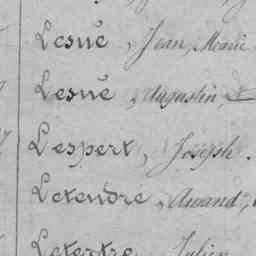 Lesué, Jean, Marie
Lesué, Augustin,
Lespert, Joseph.
Letendre, Amand,
Letertre, Julien